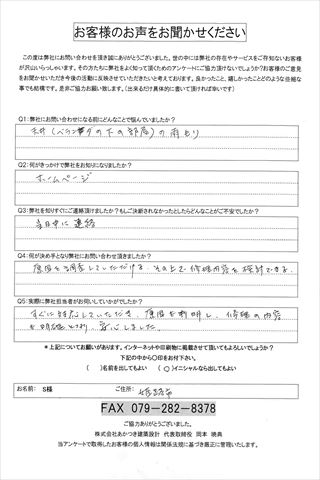 お客様のお声をお聞かせください
この度は弊社にお問い合わせを頂き誠にありがとうございました。世の中には弊社の存在やサービスをご存知ないお客様
が沢山いらっしゃいます。その方たちに弊社をよく知って頂くためのアンケートにご協力頂けないでしょうか?お客様のご意見
をお聞かせいただき今後の活動に反映させていただきたいと考えております。良かったこと、嬉しかったことどのような些細な
事でも結構です。是非ご協力お願い致します。(出来るだけ具体的に書いて頂ければ幸いです)
Q1:弊社にお問い合わせになる前にどんなことで悩んでいましたか?
天井(ベランダの下の部屋)の雨もり
Q2:何がきっかけで弊社をお知りになりましたか?
ホームページ
Q3:弊社を知りすぐにご連絡頂けましたか?もしご決断されなかったとしたらどんなことがご不安でしたか?
当日中に連絡
Q4:何が決め手となり弊社にお問い合わせ頂きましたか?
原因を調査していただける。その上で修理内容を検討できる。
Q5:実際に弊社担当者がお伺いしていかがでしたか?
すぐに対応していただき、原因も判明し、修理の内容
も明確となり、安心しました。
*上記についてお願いがあります。インターネットや印刷物に掲載させて頂いてもよろしいでしょうか?
下記の中から〇印をお付下さい。
( )名前を出してもよい (〇)イニシャルなら出してもよい
お名前: S様 ご住所: 姫路市
FAX 079-282-8378
ご協力ありがとうございました。
株式会社あかつき建築設計 代表取締役 岡本 暁典
当アンケートで取得したお客様の個人情報は関係法規に基づき厳正に管理いたします。